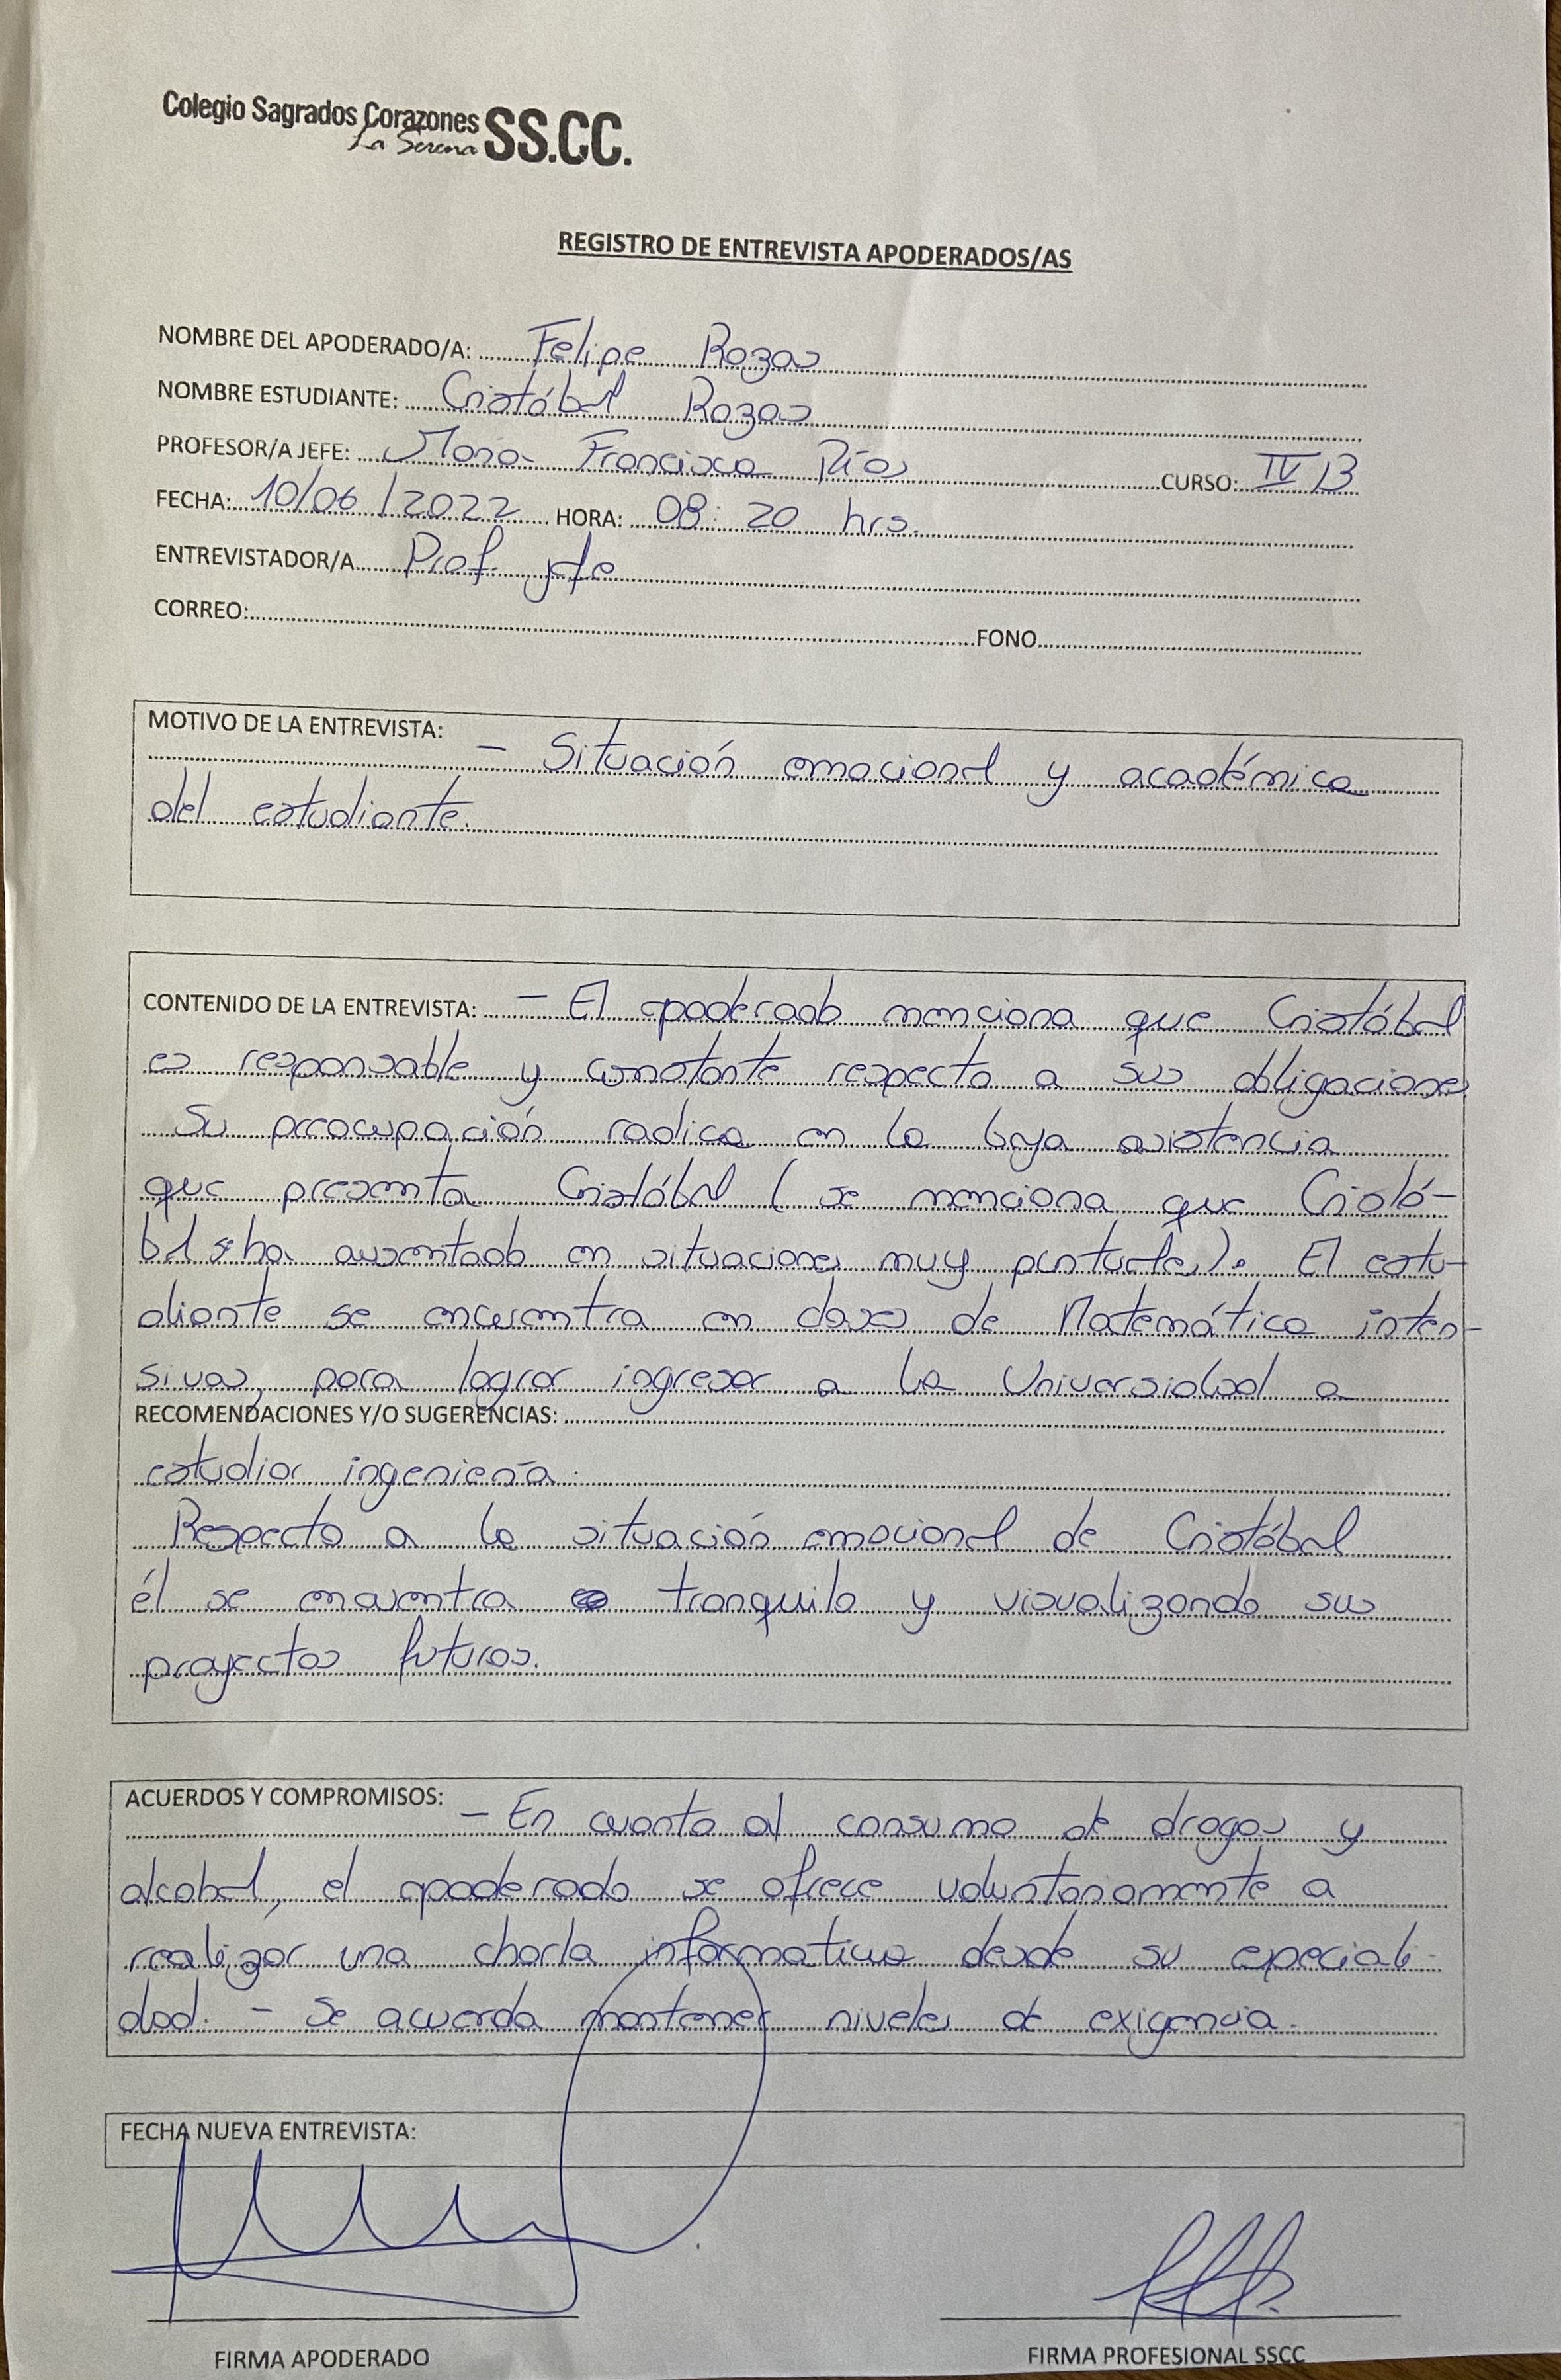 Colegio Sagrados Corazones SS.CC.
La Serena
REGISTRO DE ENTREVISTA APODERADOS/AS
NOMBRE DEL APODERADO/A: Felipe Rozas
NOMBRE ESTUDIANTE: Cristóbal Rozas
PROFESOR/A JEFE: María Francisca Ríos CURSO: IV B
FECHA: 10/06/2022 HORA: 08:20 hrs.
ENTREVISTADOR/A Prof. jefe
CORREO: FONO
MOTIVO DE LA ENTREVISTA: - Situación emocional y académica
del estudiante.
CONTENIDO DE LA ENTREVISTA: - El apoderado menciona que Cristóbal
es responsable y constante respecto a sus obligaciones
Su preocupación radica en la baja asistencia
que presenta Cristóbal (se menciona que Cristó-
bal se ha ausentado en situaciones muy puntuales). El estu-
diante se encuentra en clases de Matemática inten-
sivas, para lograr ingresar a la Universidad a
RECOMENDACIONES Y/O SUGERENCIAS:
estudiar ingeniería.
Respecto a la situación emocional de Cristóbal
él se encuentra tranquilo y visualizando sus
proyectos futuros.
ACUERDOS Y COMPROMISOS: - En cuanto al consumo de drogas y
alcohol, el apoderado se ofrece voluntariamente a
realizar una charla informativa desde su especiali-
dad. - Se acuerda mantener niveles de exigencia.
FECHA NUEVA ENTREVISTA:
FIRMA APODERADO FIRMA PROFESIONAL SSCC